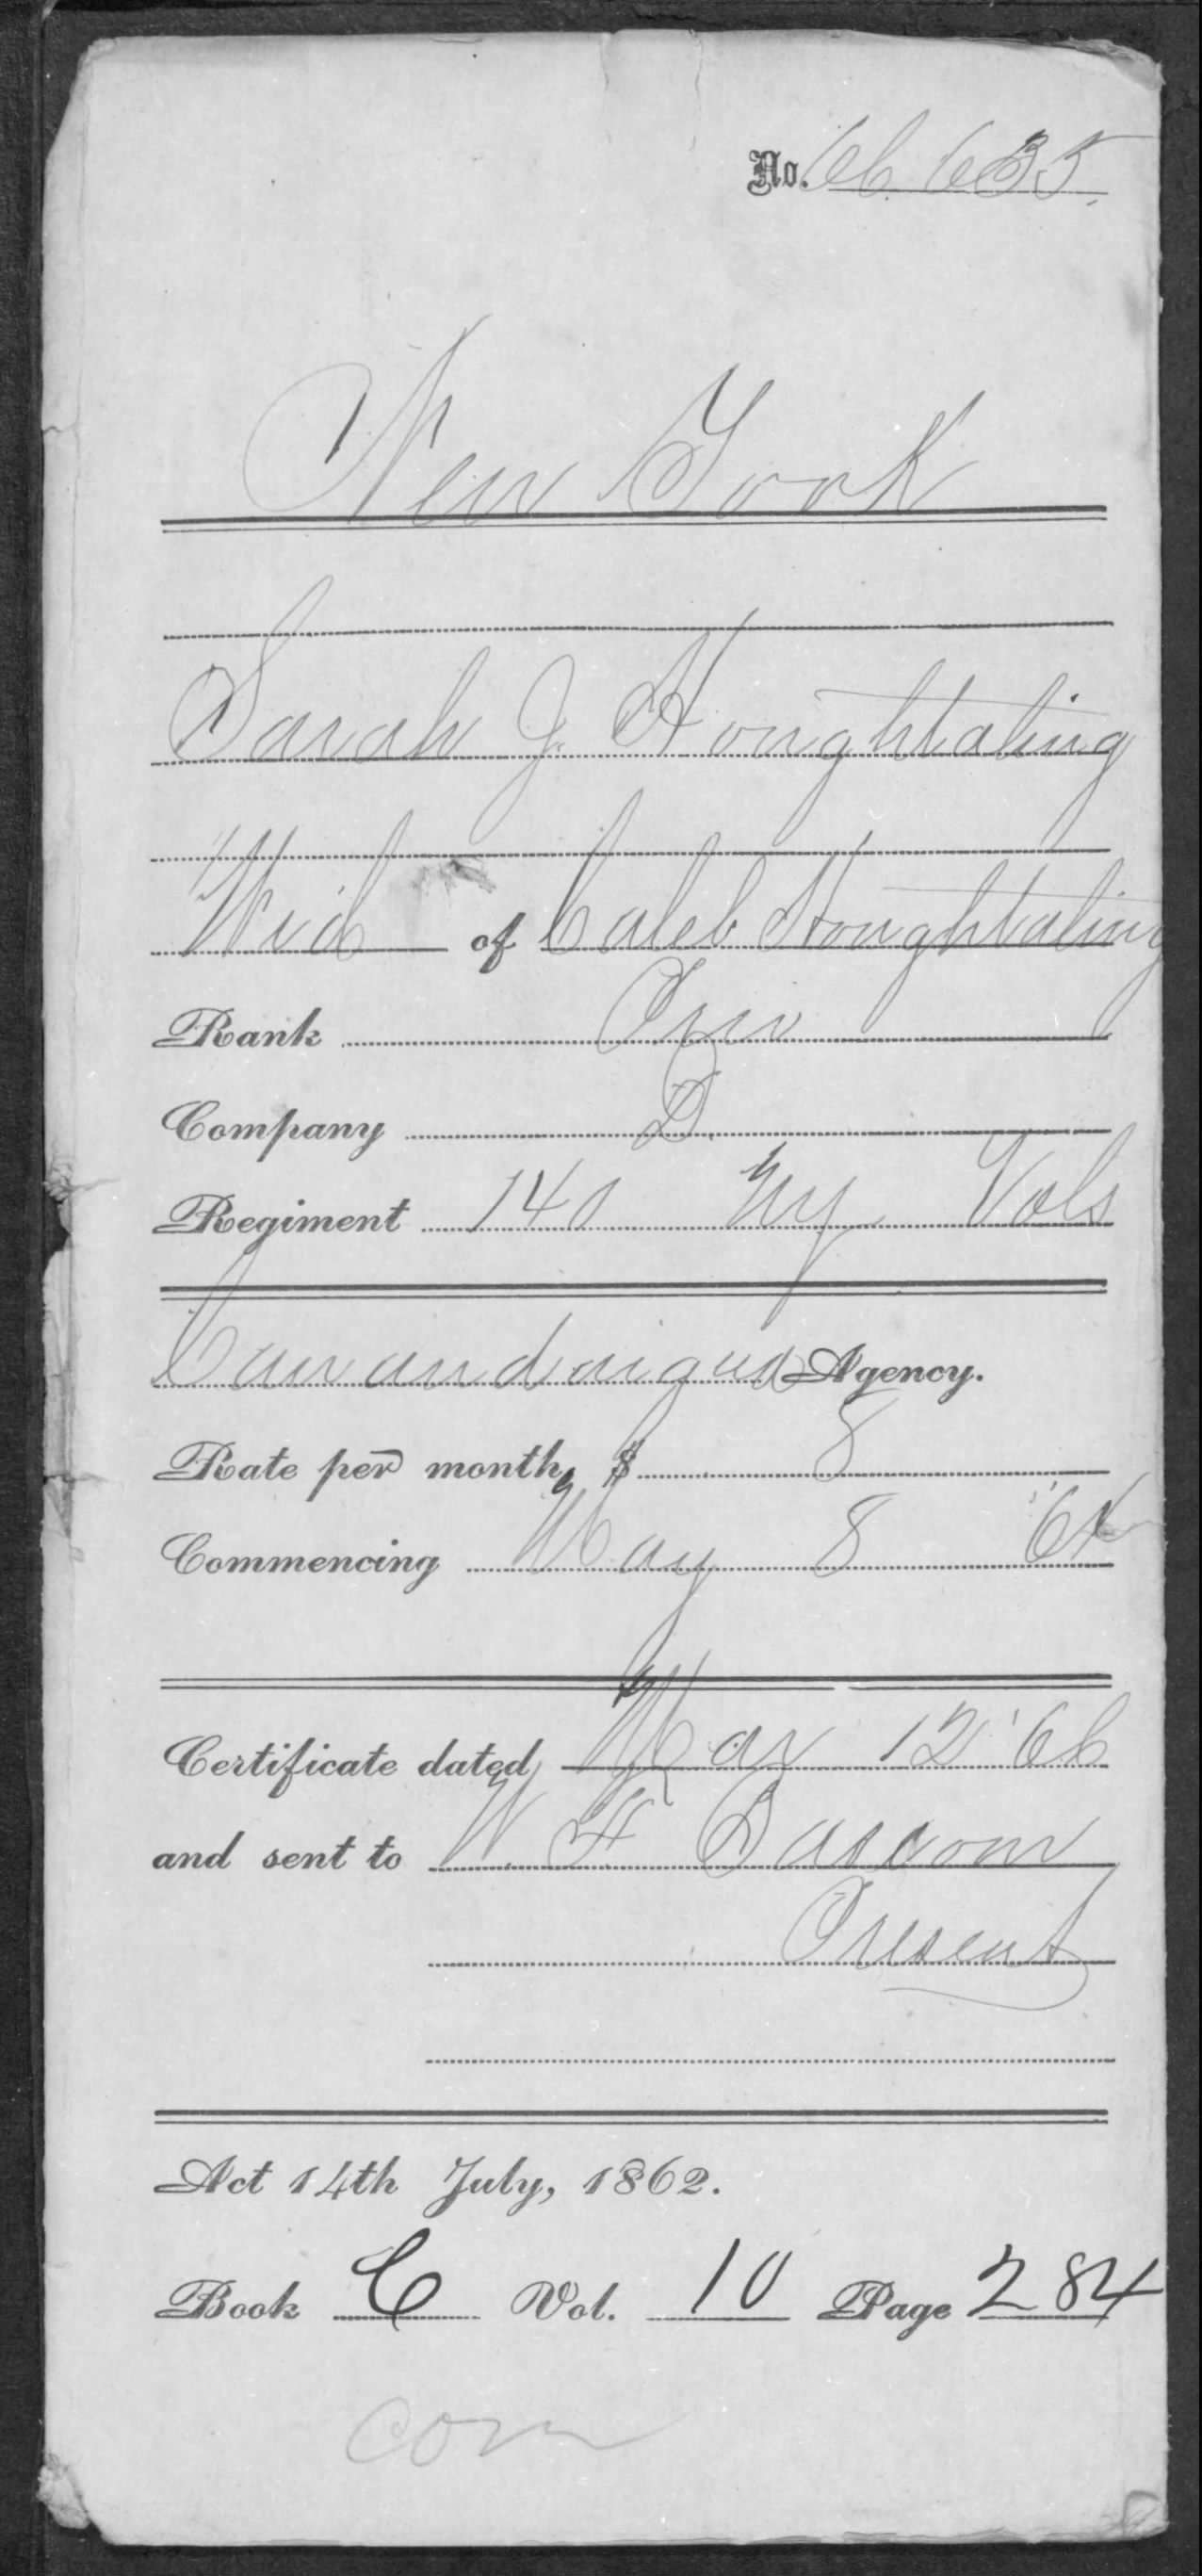 No. 66.635.
New York
Sarah J. Houghtaling
Wid of Caleb Houghtaling
Rank Priv
Company D.
Regiment 140 NY Vols
Canandaigua Agency.
Rate per month, $ 8
Commencing May 8 '64
Certificate dated Mar 12 '66
and sent to W. F. Bascom
Present
Act 14th July, 1862.
Book C Vol. 10 Page 284
com